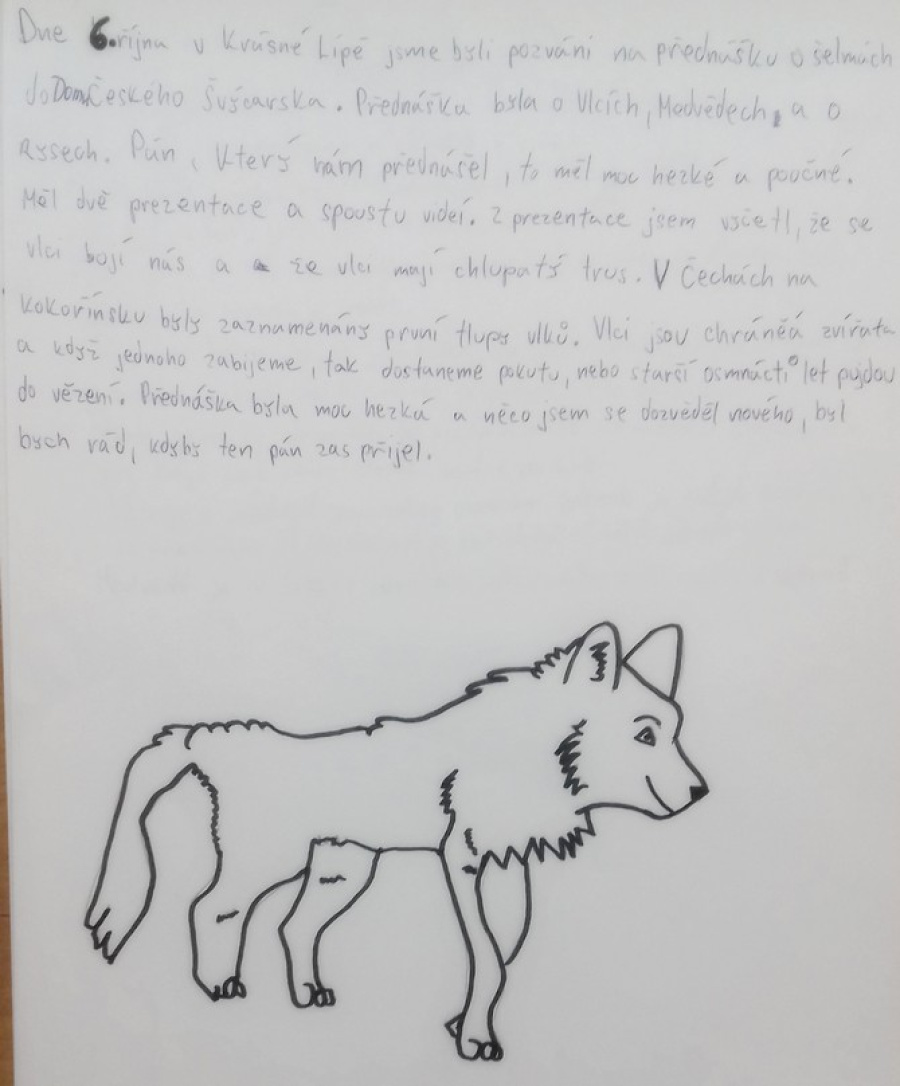 Dne 6.října v Krásné Lípě jsme byli pozváni na přednášku o šelmách
doDomČeského Švýcarska. Přednáška byla o Vlcích, Medvědech, a o
Rysech. Pán, který nám přednášel, to měl moc hezké a poučné.
Měl dvě prezentace a spoustu videí. Z prezentace jsem vyčetl, že se
vlci bojí nás a že vlci mají chlupatý trus. V Čechách na
Kokořínsku byly zaznamenány první tlupy vlků. Vlci jsou chráněá zvířata
a když jednoho zabijeme, tak dostaneme pokutu, nebo starší osmnácti let pujdou
do vězení. Přednáška byla moc hezká a něco jsem se dozvěděl nového, byl
bych rád, kdyby ten pán zas přijel.